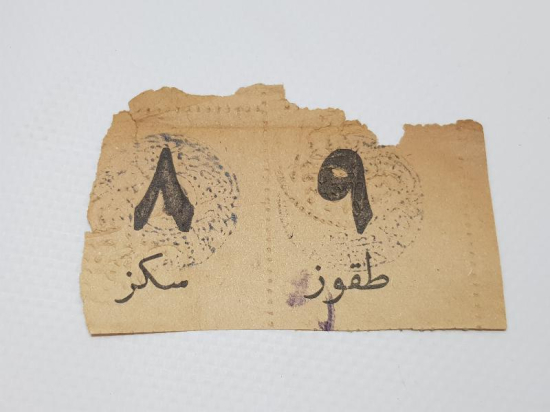 ٩ ٨
طقوز سكز